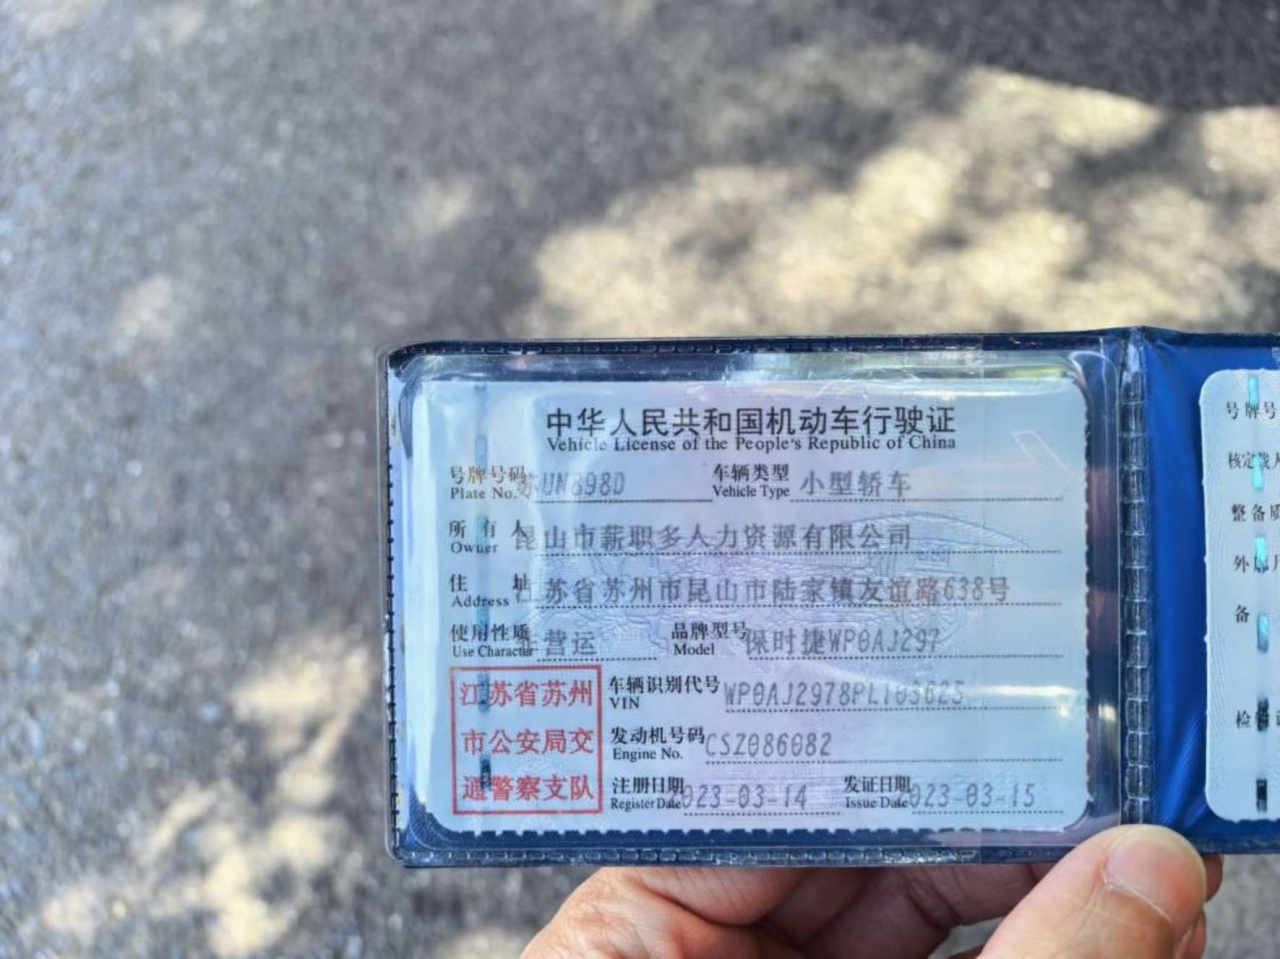 中华人民共和国机动车行驶证
Vehicle License of the People's Republic of China
号牌号码 苏UN898D 车辆类型 小型轿车
Plate No. Vehicle Type
所有人 昆山市薪职多人力资源有限公司
Owner
住址 江苏省苏州市昆山市陆家镇友谊路638号
Address
使用性质 非营运 品牌型号 保时捷WP0AJ297
Use Character Model
江苏省苏州
市公安局交
通警察支队
车辆识别代号 WP0AJ2978PL103623
VIN
发动机号码 CSZ086082
Engine No.
注册日期 023-03-14 发证日期 023-03-15
Register Date Issue Date
号牌号
核定载人
整备质
外
备
检